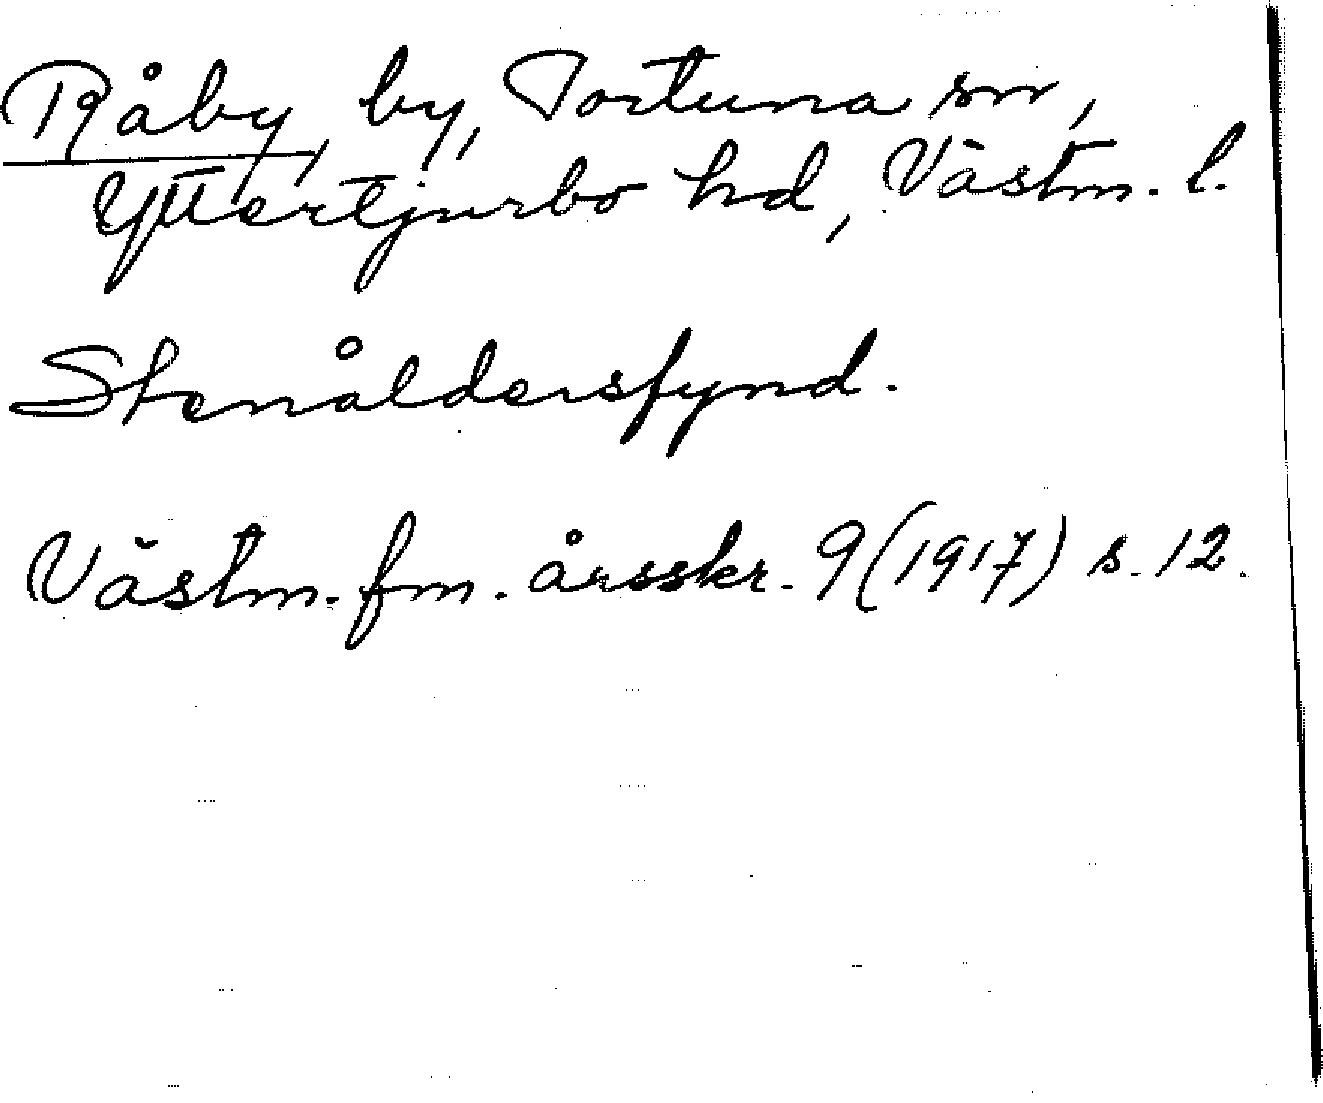 Råby, by, Tortuna sn,
Yttertjurbo hd, Västm. l.
Stenåldersfynd.
Västm. fm. årsskr. 9 (1917) s. 12.